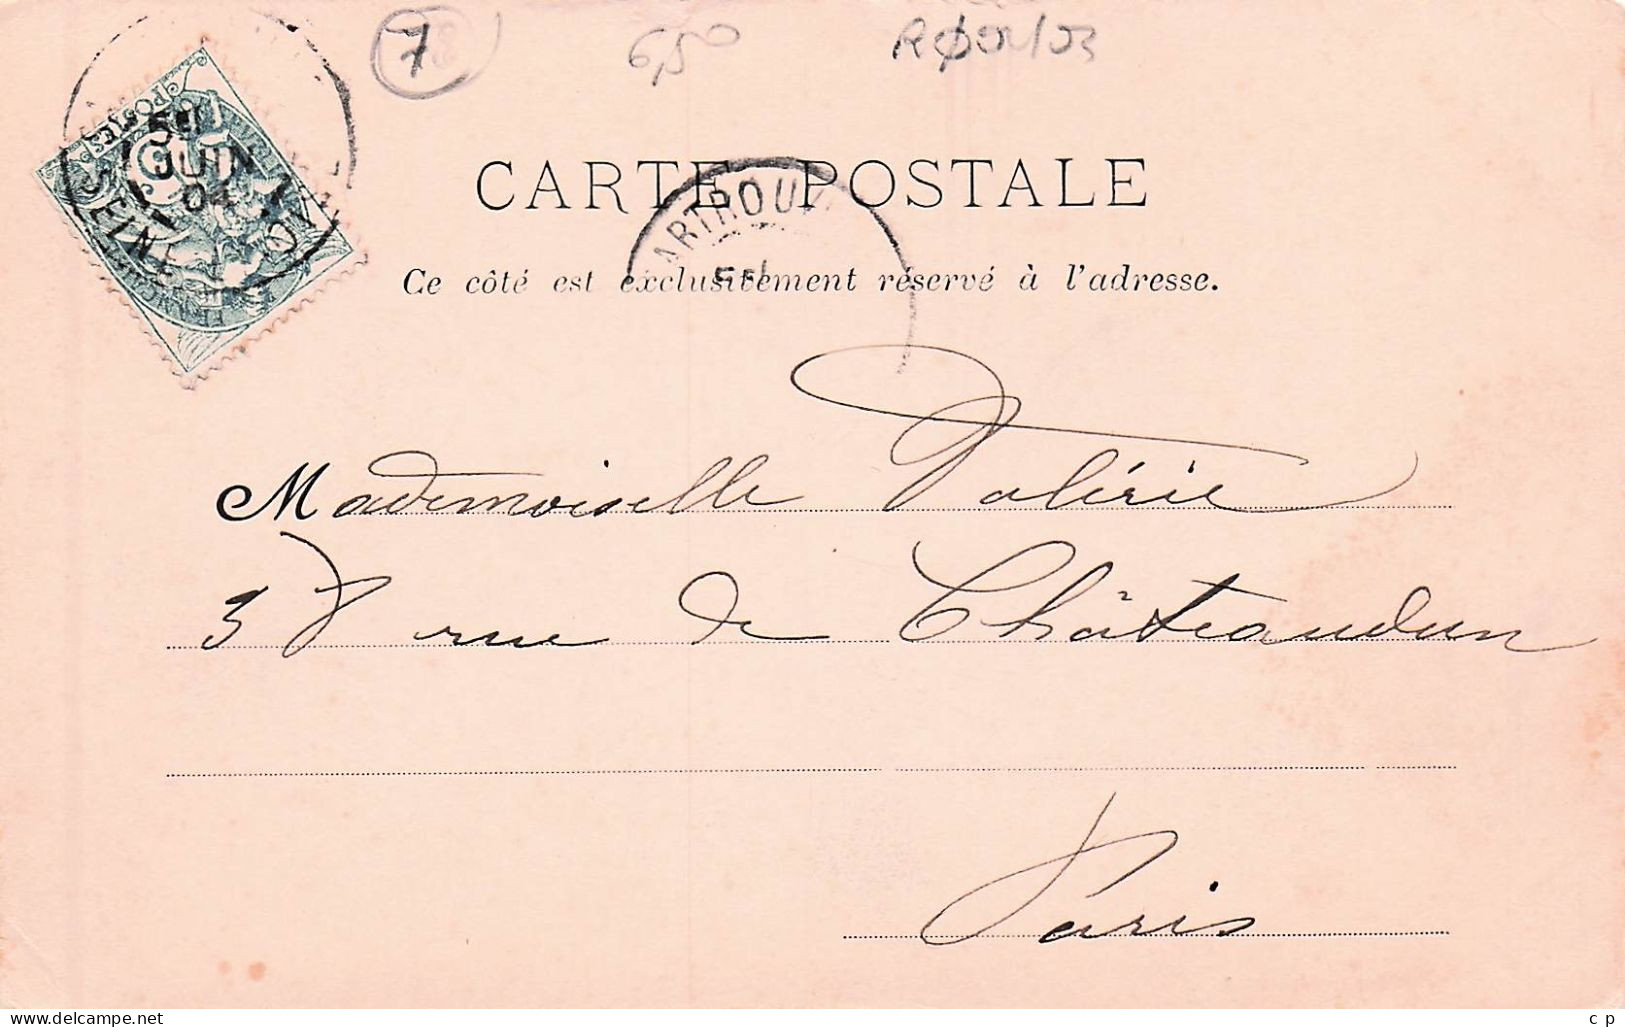 7
6,50
CARTE POSTALE
POSTES
5
JUIN
04
SEINE
ARTROUV
Ce côté est exclusivement réservé à l'adresse.
Mademoiselle Valérie
37 rue de Châteaudun
Paris
www.delcampe.net
c p